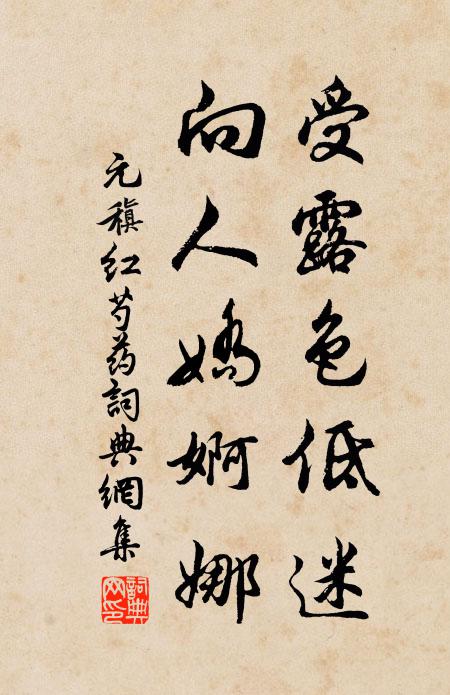 受露色低迷
向人嬌婀娜
元稹红芍药詞典網集
詞典網印